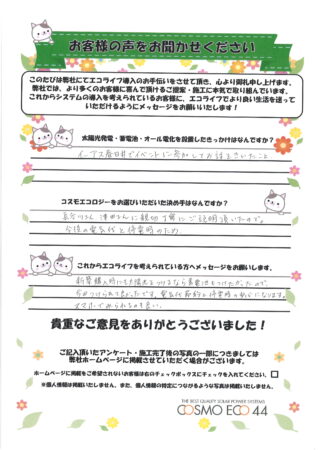 お客様の声をお聞かせください
このたびは弊社にてエコライフ導入のお手伝いをさせて頂き、心より御礼申し上げます。
弊社では、より多くのお客様に喜んで頂けるご提案・施工に本気で取り組んでいます。
これからシステムの導入を考えられているお客様に、エコライフでより良い生活を送って
いただけるようにメッセージをお願いします！
太陽光発電・蓄電池・オール電化を設置したきっかけはなんですか？
イーアス春日井でイベントに参加してお話をきいたこと。
コスモエコロジーをお選びいただいた決め手はなんですか？
さんに親切丁寧にご説明頂いたので。
今後の電気代と停電時のため
これからエコライフを考えられている方へメッセージをお願いします。
新築購入時にも
スマホでみられるのも良い。
貴重なご意見をありがとうございました！
ご記入頂いたアンケート・施工完了後の写真の一部につきましては
弊社ホームページに掲載させていただく場合がございます。
ホームページに掲載をご希望されないお客様は右のチェックボックスにチェックを入れてください。
※個人情報は掲載いたしません。また、個人情報の特定につながるような写真は掲載いたしません。
THE BEST QUALITY SOLAR POWER SYSTEMS
COSMO ECO 44